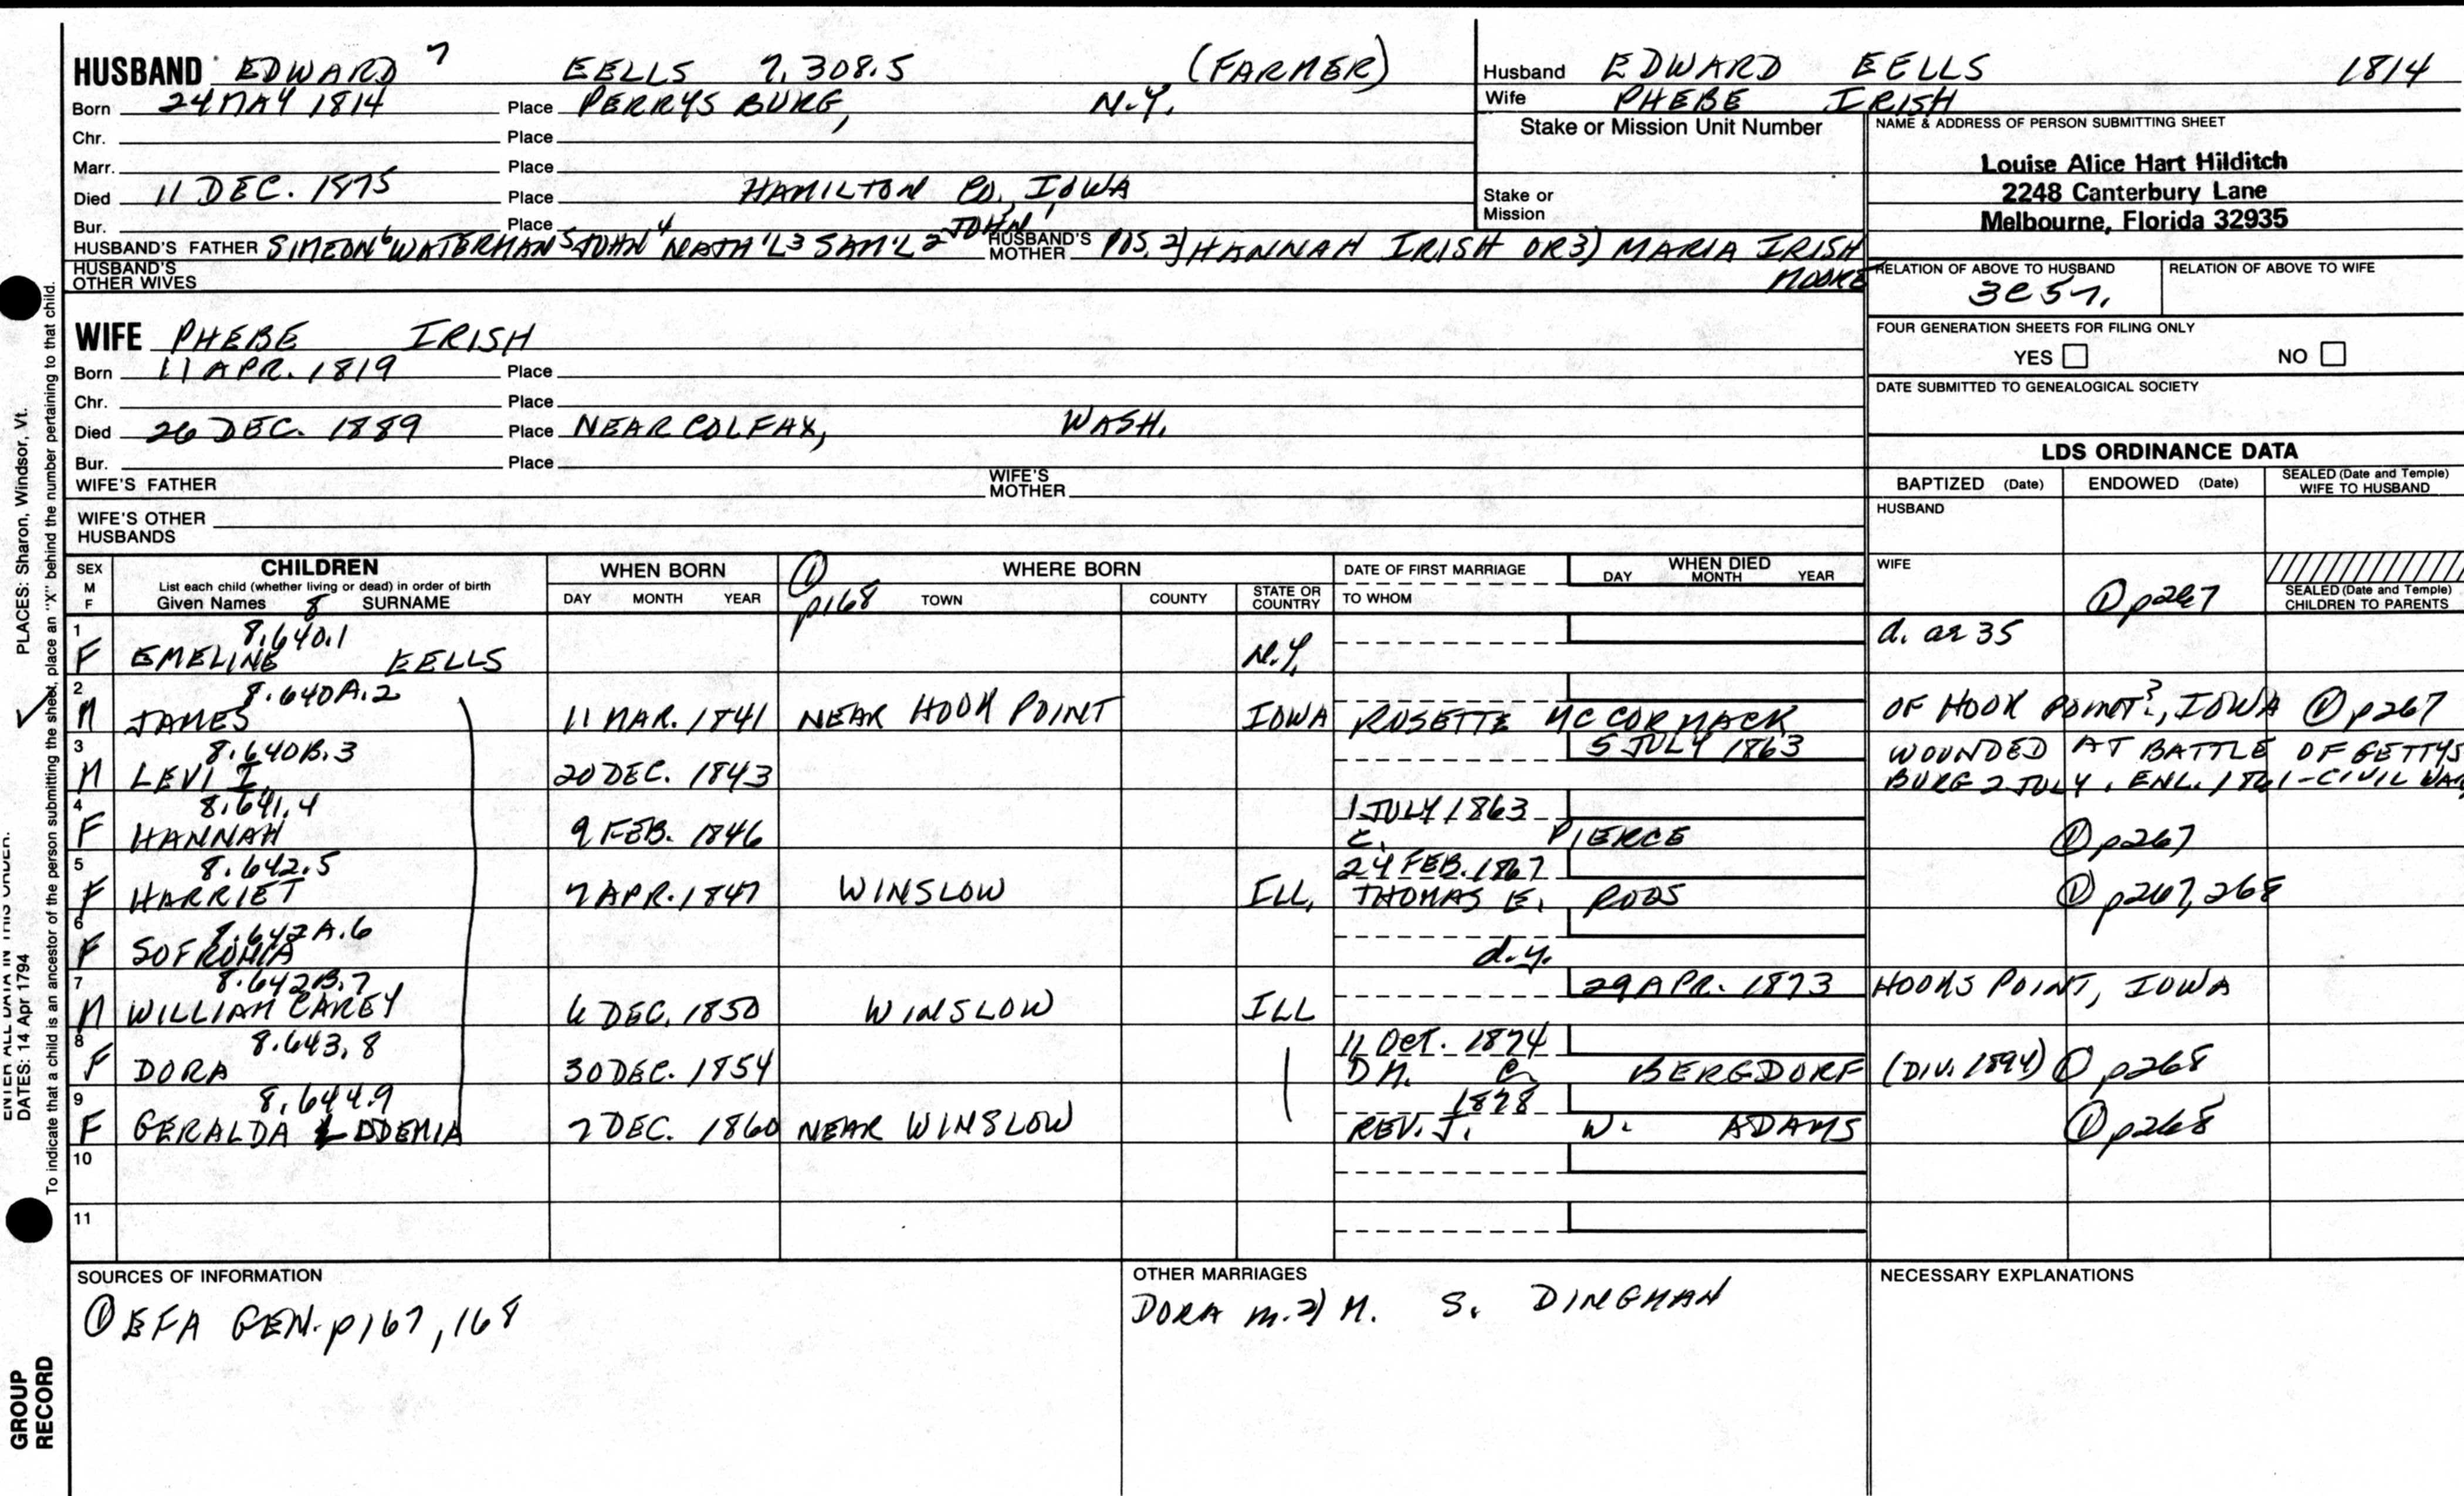 HUSBAND EDWARD 7 EELLS 7.308.5 (FARMER)
Born 24 MAY 1814 Place PERRYSBURG, N.Y.
Chr. Place
Marr. Place
Died 11 DEC. 1875 Place HAMILTON CO, IOWA
Bur. Place
HUSBAND'S FATHER SIMEON 6 WATERMAN 5 JOHN 4 NATH'L 3 SAM'L 2 JOHN 1 HUSBAND'S MOTHER POS. 2) HANNAH IRISH OR 3) MARIA IRISH MOORE
HUSBAND'S OTHER WIVES
Husband EDWARD EELLS 1814
Wife PHEBE IRISH
Stake or Mission Unit Number
Stake or Mission
NAME & ADDRESS OF PERSON SUBMITTING SHEET
Louise Alice Hart Hilditch
2248 Canterbury Lane
Melbourne, Florida 32935
RELATION OF ABOVE TO HUSBAND RELATION OF ABOVE TO WIFE
3C5r.
FOUR GENERATION SHEETS FOR FILING ONLY
YES NO
DATE SUBMITTED TO GENEALOGICAL SOCIETY
WIFE PHEBE IRISH
Born 11 APR. 1819 Place
Chr. Place
Died 26 DEC. 1889 Place NEAR COLFAX, WASH.
Bur. Place
WIFE'S FATHER WIFE'S MOTHER
WIFE'S OTHER HUSBANDS
LDS ORDINANCE DATA
BAPTIZED (Date) ENDOWED (Date) SEALED (Date and Temple) WIFE TO HUSBAND
HUSBAND
WIFE ① p267
SEALED (Date and Temple) CHILDREN TO PARENTS
SEX M F
CHILDREN
List each child (whether living or dead) in order of birth
Given Names 8 SURNAME
WHEN BORN
DAY MONTH YEAR
① p168 WHERE BORN
TOWN COUNTY STATE OR COUNTRY
DATE OF FIRST MARRIAGE
TO WHOM
WHEN DIED
DAY MONTH YEAR
1 8.640.1
F EMELINE EELLS N.Y. d. ae 35
2 8.640A.2
M JAMES 11 MAR. 1841 NEAR HOOK POINT IOWA ROSETTE MC CORMACK OF HOOK POINT?, IOWA ① p267
3 8.640B.3 5 JULY 1863 WOUNDED AT BATTLE OF GETTYS
M LEVI I. 20 DEC. 1843 BURG 2 JULY, ENL. 1861-CIVIL WAR
4 8.641.4 1 JULY 1863
F HANNAH 9 FEB. 1846 C. PIERCE ① p267
5 8.642.5 24 FEB. 1867
F HARRIET 7 APR. 1847 WINSLOW ILL, THOMAS E. ROOS ① p267, 268
6 8.642A.6
F SOFRONIA d.y.
7 8.642B.7 29 APR. 1873 HOOKS POINT, IOWA
M WILLIAM CAREY 6 DEC. 1850 WINSLOW ILL
8 8.643.8 11 OCT. 1874
F DORA 30 DEC. 1854 DN. C. BERGDORF (DIV. 1894) ① p268
9 8.644.9 1878
F GERALDA LODEMIA 7 DEC. 1860 NEAR WINSLOW REV. J. W. ADAMS ① p268
10
11
SOURCES OF INFORMATION
① EFA GEN. p167, 168
OTHER MARRIAGES
DORA m. 2) M. S. DINGMAN
NECESSARY EXPLANATIONS
PLACES: Sharon, Windsor, Vt.
ENTER ALL DATA IN THIS ORDER:
DATES: 14 Apr 1794
To indicate that a child is an ancestor of the person submitting the sheet, place an "X" behind the number pertaining to that child.
GROUP
RECORD